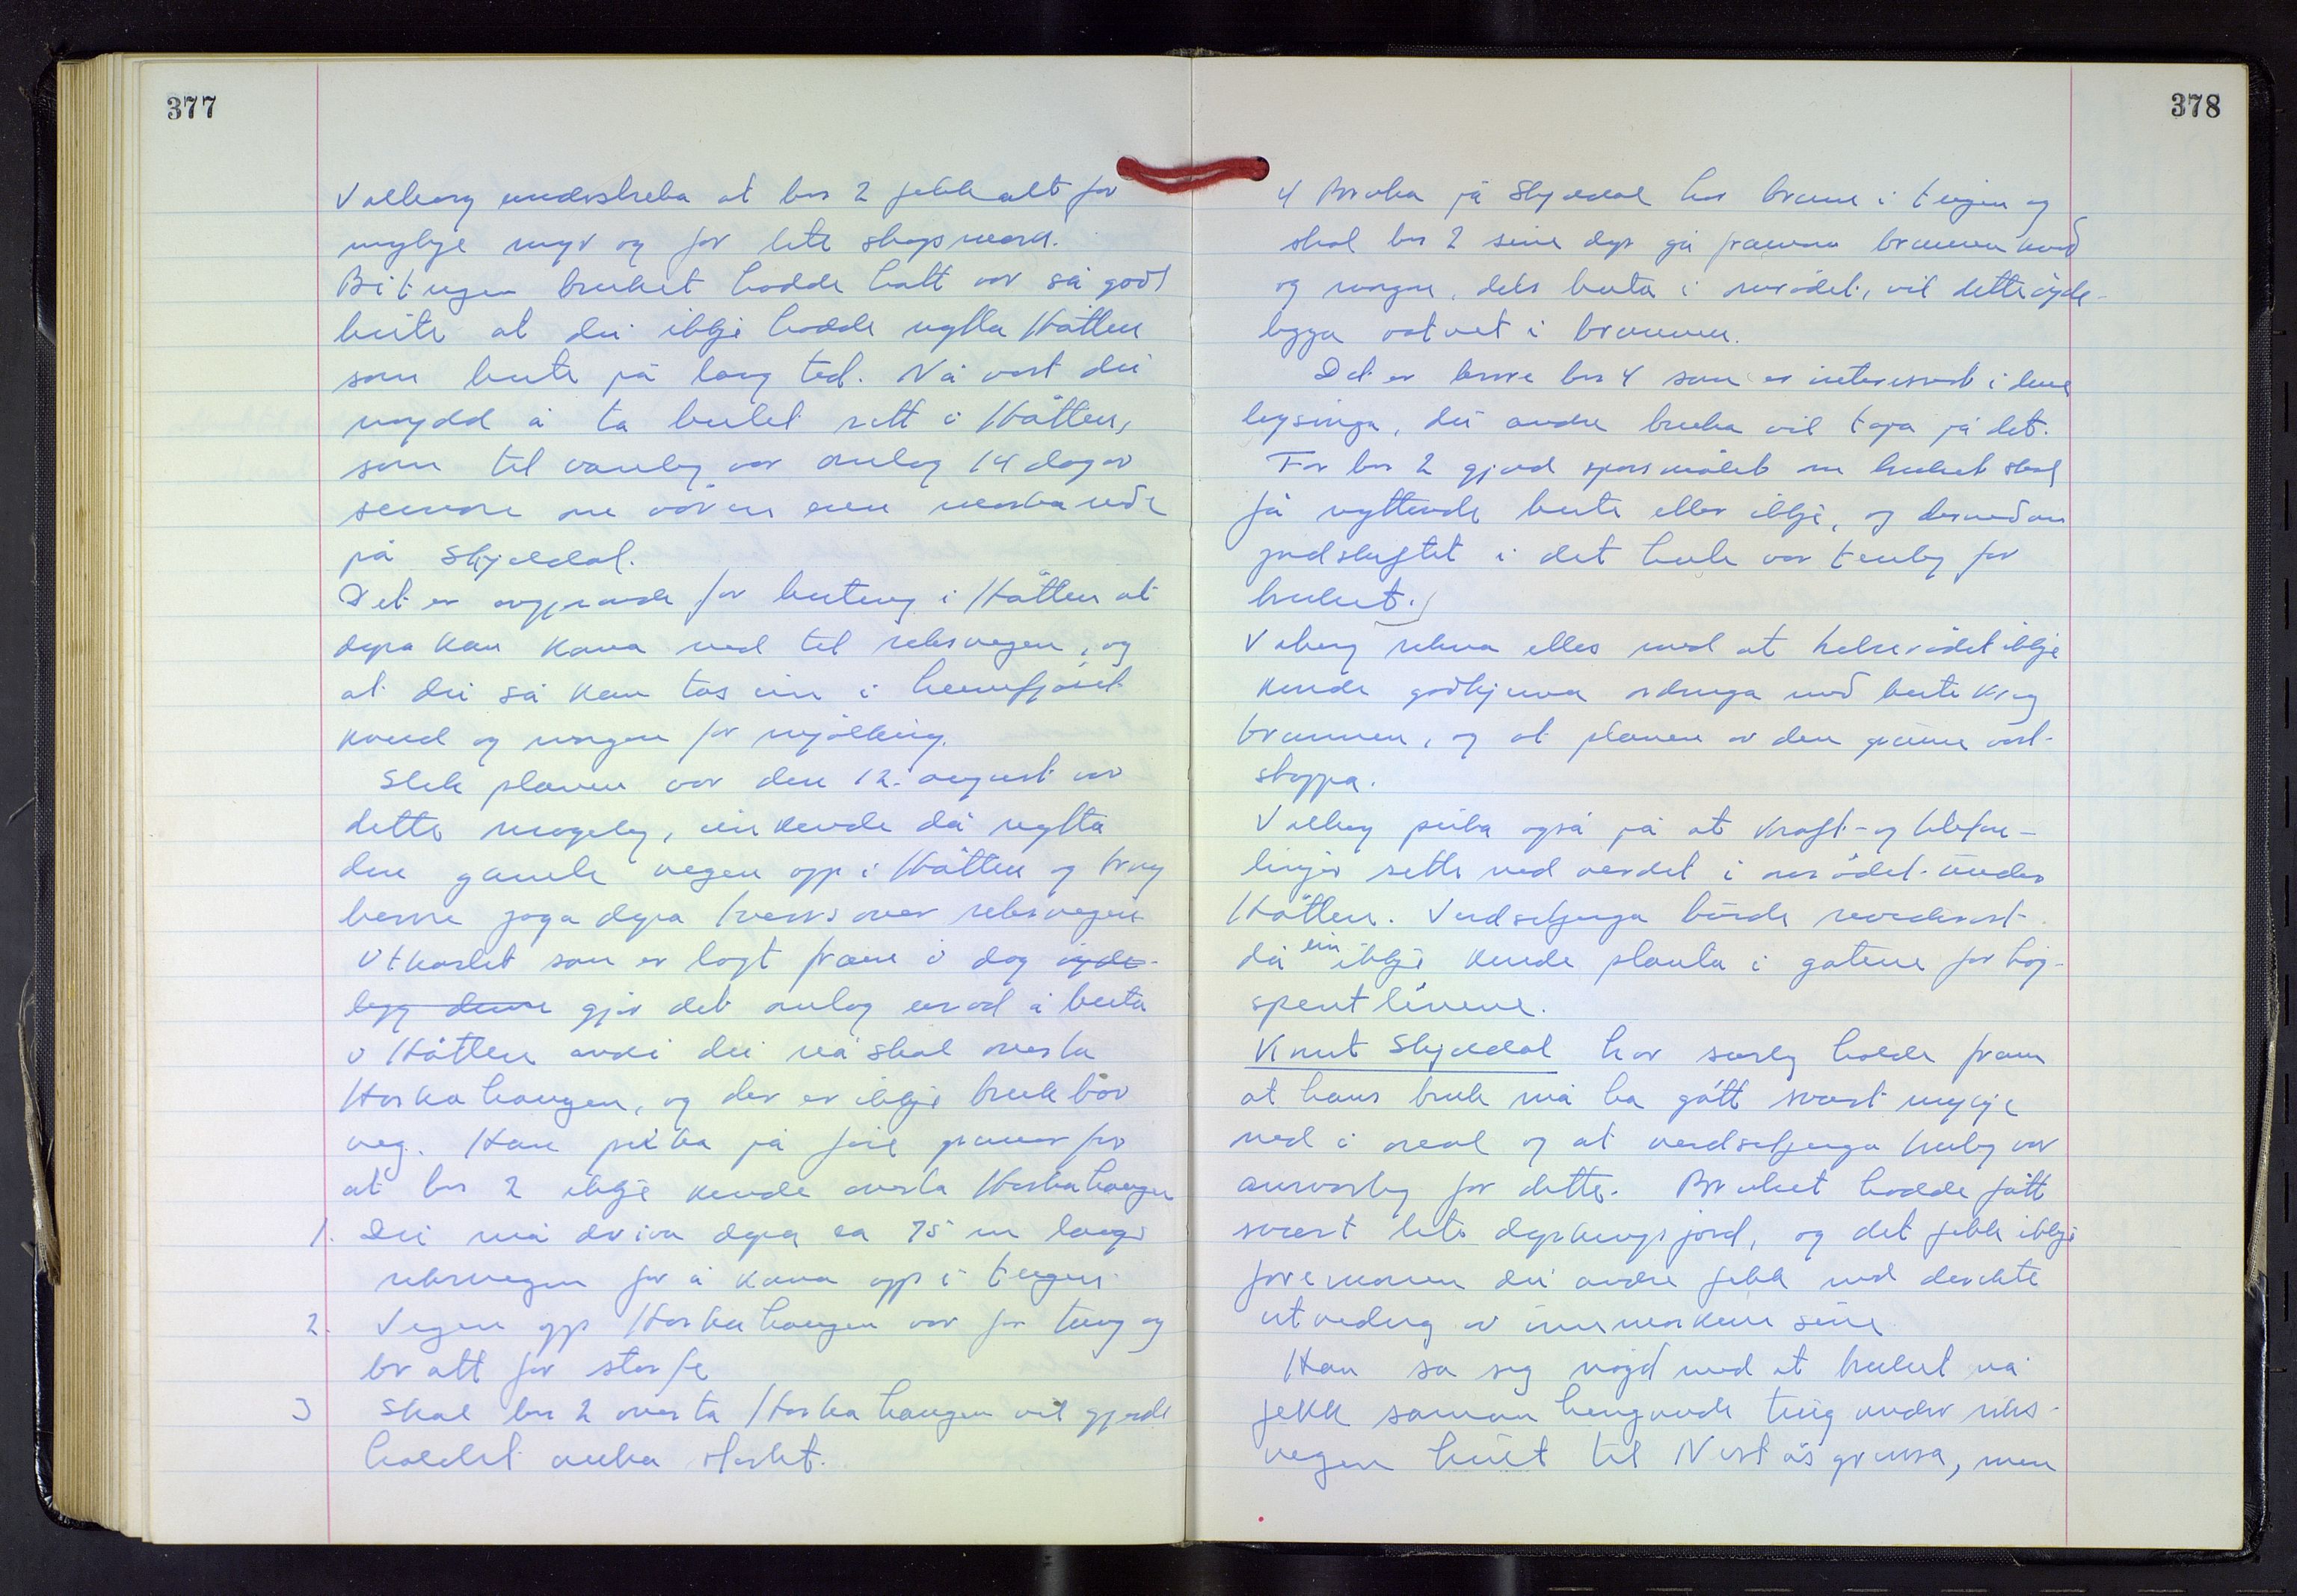 377
Valborg understreka at bnr 2 fekk alt for
mykje myr og for lite skogsmark.
Beitingen bruket hadde hatt var så god
beite at dei ikkje hadde nytta Håtten
som beite på lang tid. Nå vart dei
nøydd å ta beitet sitt i Håtten,
som til vanleg var omlag 14 dagar
seinare om våren enn marka nede
på Skjeldal.
Det er avgjerande for beiting i Håtten at
dyra kan koma ned til riksvegen, og
at dei så kan tas inn i heimfjøset
kveld og morgon for mjølking.
Slik planen var den 12. august var
dette mogeleg, ein kunde då nytta
den gamle vegen opp i Håtten og
berre jaga dyra tvers over riksvegen
Utkastet som er lagt fram i dag øyde-
legg denne gjer det omlag uråd å beita
i Håtten avdi dei nå skal overta
Horkahaugen, og der er ikkje brukbar
veg. Han peika på fire grunnar for
at bnr 2 ikkje kunde overta Horkahaugen
1. Dei må driva dyra ca 75 m langs
riksvegen for å koma opp i teigen.
2. Vegen opp Horkahaugen var for tung og
bratt for storfe
3 Skal bnr 2 overta Horkahaugen vil gjerde
haldet auka sterkt.
378
4 Bruka på Skjeldal har brunn i teigen og
skal bnr 2 sine dyr gå framom brunnen kveld
og morgon, dels beita i området, vil dette øyde-
leggja vatnet i brunnen.
Det er berre bnr 4 som er interessert i denne
løysinga, dei andre bruka vil tapa på det.
For bnr 2 gjeld spørsmålet om bruket skal
få nyttande beite eller ikkje, og dermed om
jordskiftet i det heile var tenleg for
bruket.
Valborg rekna elles med at helserådet ikkje
kunde godkjenna ordninga med beite kring
brunnen, og at planen av den grunn vart
stoppa.
Valborg peika også på at kraft- og telefon-
linjer sette ned verdet i området under
Håtten. Verdsetjinga burde reviderast
då ein ikkje kunde planta i gatene for høg-
spentlinene.
Knut Skjeldal har særleg halde fram
at hans bruk må ha gått svært mykje
ned i areal og at verdsetjinga truleg var
ansvarleg for dette. Bruket hadde fått
svært lite dyrkingsjord, og det fekk ikkje
foremonen dei andre fekk med direkte
utviding av innmarkene sine
Han sa seg nøgd med at bruket nå
fekk samanhengande teig under riks-
vegen heilt til Nestås grensa, men